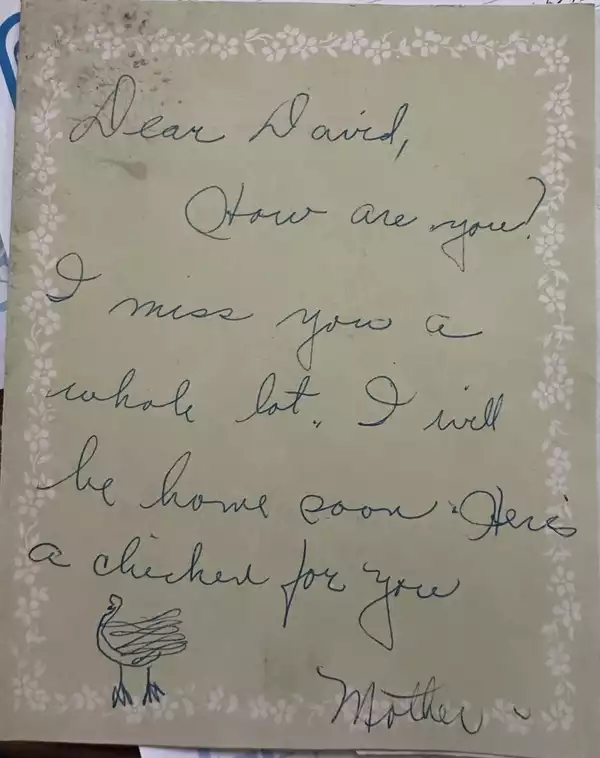 Dear David,
How are you?
I miss you a
whole lot. I will
be home soon. Here's
a chicken for you
Mother